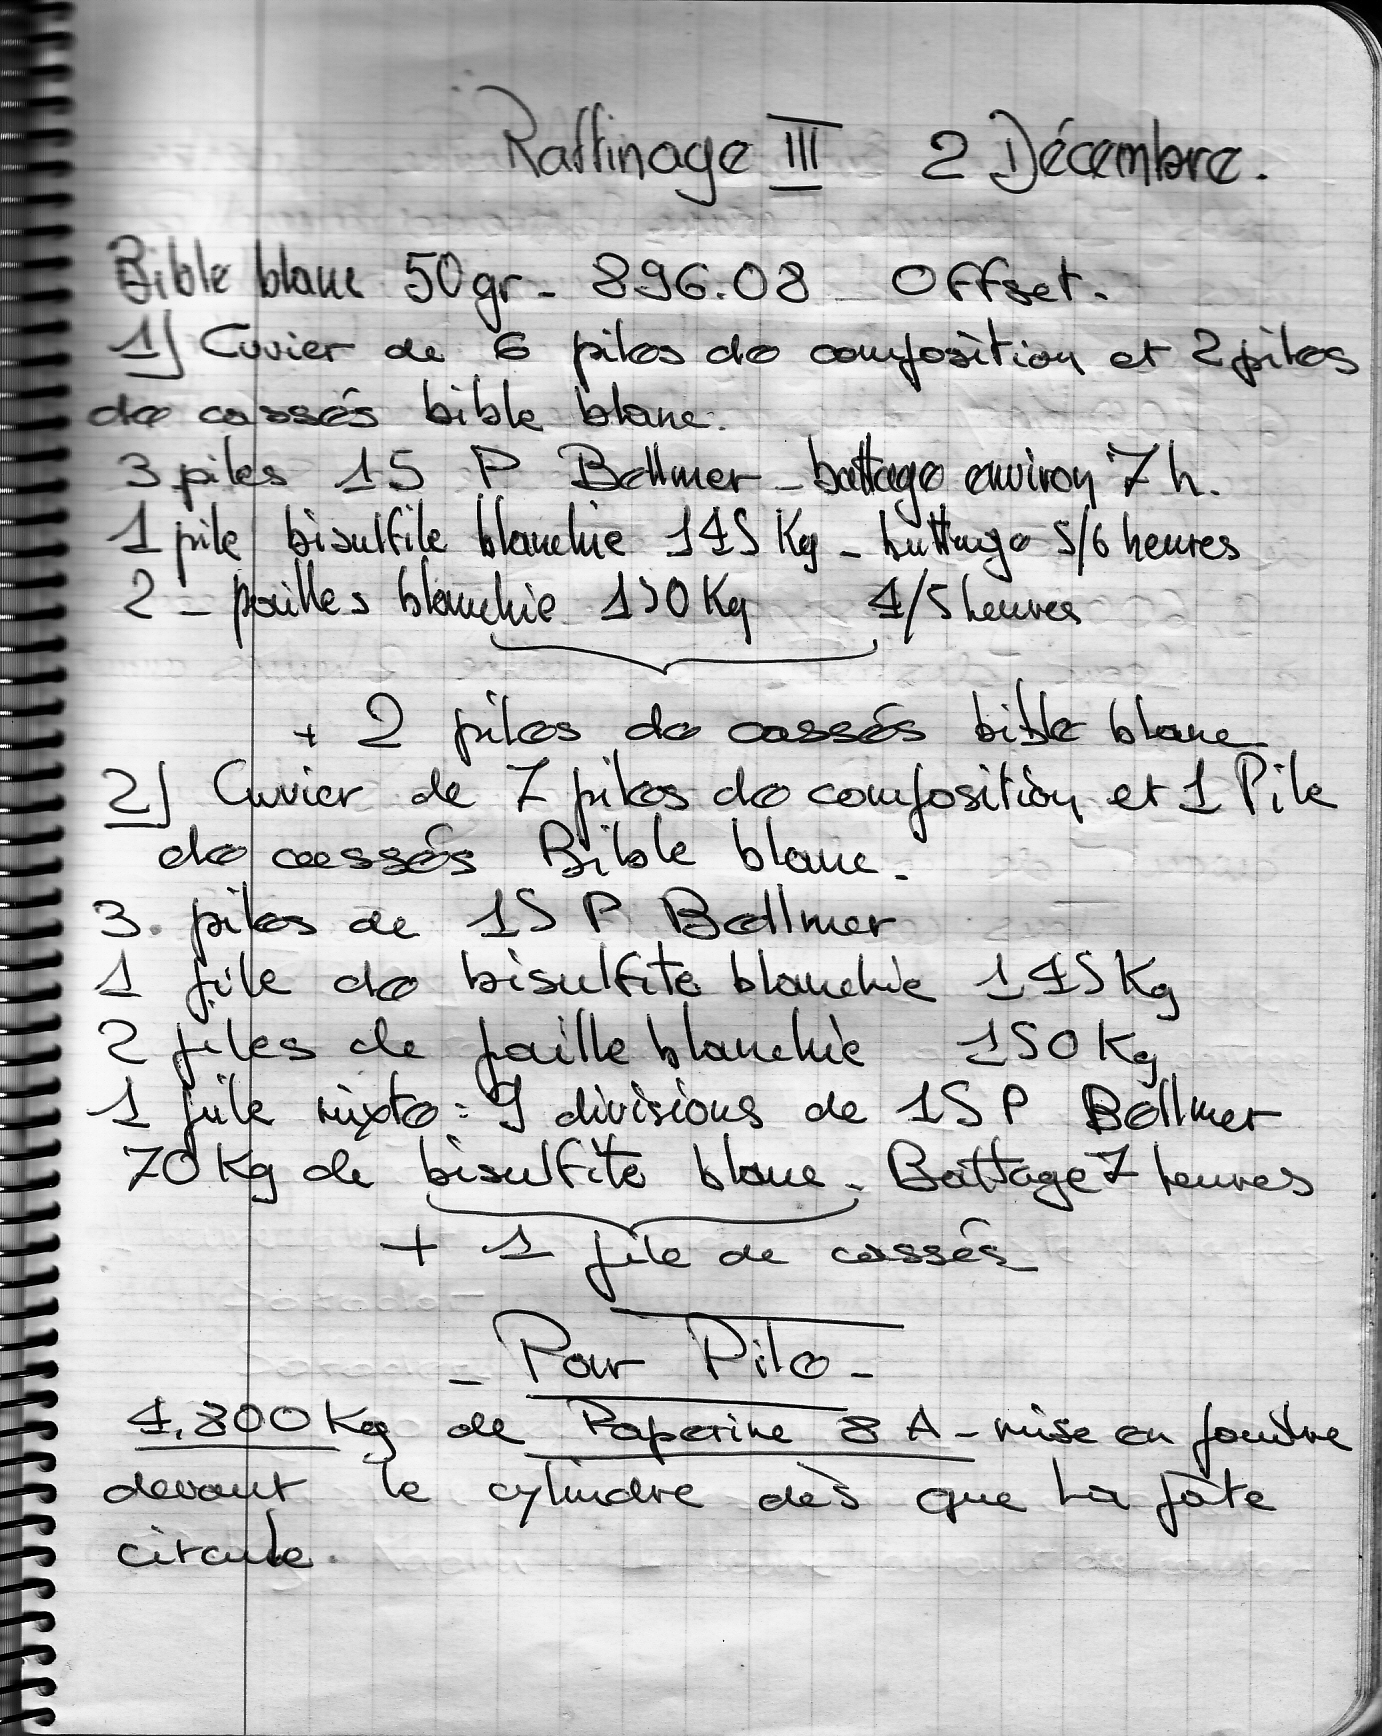 Raffinage III 2 Décembre.
Bible blanc 50gr - 896.08 Offset.
1) Cuvier de 6 piles de composition et 2 piles
de cassés bible blanc.
3 piles 15 P Bollmer - battage environ 7 h.
1 pile bisulfite blanchie 145 Kg - battage 5/6 heures
2 - pailles blanchie 150 Kg 4/5 heures
+ 2 piles de cassés bible blanc
2) Cuvier de 7 piles de composition et 1 Pile
de cassés Bible blanc.
3. piles de 15 P Bollmer
1 pile de bisulfite blanchie 145 Kg
2 piles de paille blanchie 150 Kg
1 pile mixte : 9 divisions de 15 P Bollmer
70 Kg de bisulfite blanc - Battage 7 heures
+ 1 pile de cassés
- Pour Pile -
1,800 Kg de Paperine 8 A - mise en poudre
devant le cylindre dès que la pâte
circule.